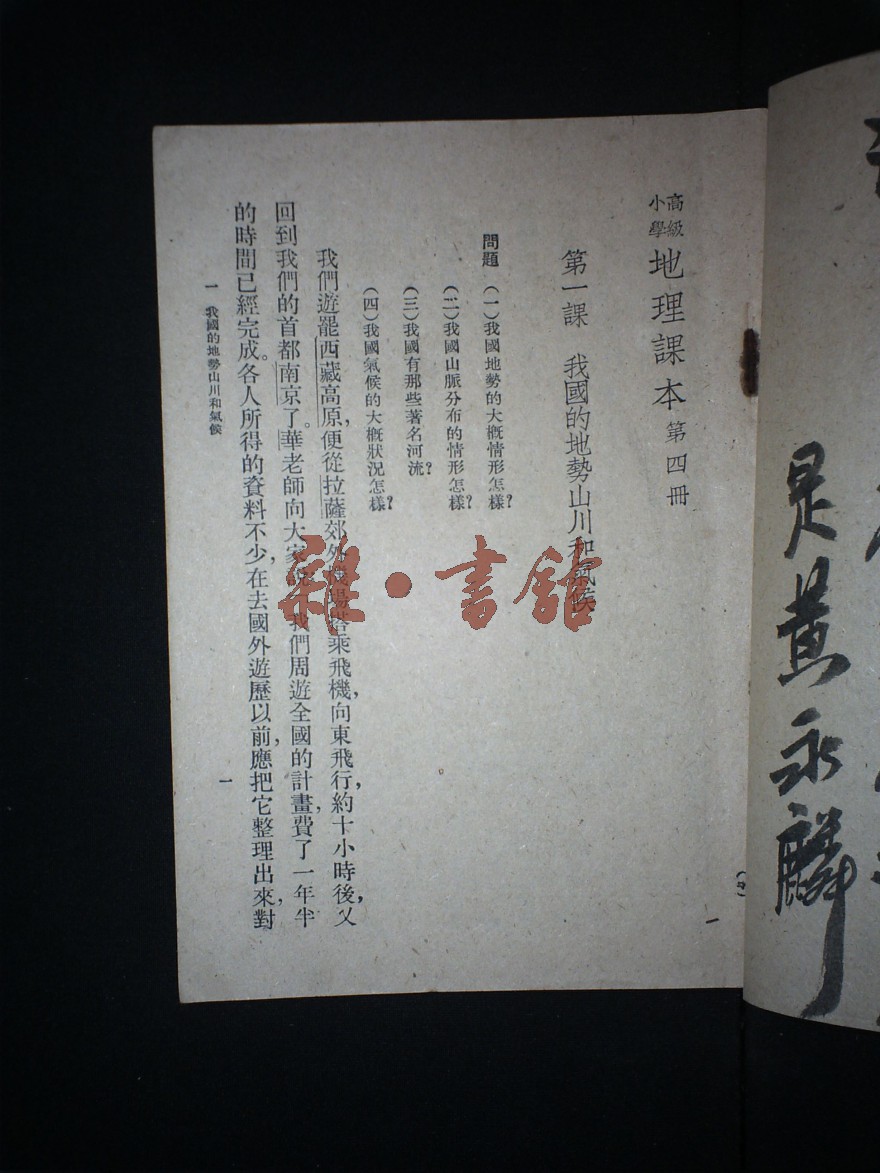 高級小學 地理課本 第四冊
第一課 我國的地勢山川和氣候
問題 (一)我國地勢的大概情形怎樣?
(二)我國山脈分布的情形怎樣?
(三)我國有那些著名河流?
(四)我國氣候的大概狀況怎樣?
我們遊罷西藏高原,便從拉薩郊外機場搭乘飛機,向東飛行,約十小時後,又
回到我們的首都南京了。華老師向大家說「我們周遊全國的計畫,費了一年半
的時間已經完成。各人所得的資料不少,在去國外遊歷以前,應把它整理出來,對
一 我國的地勢山川和氣候
一
雜·書館
是黃永麟